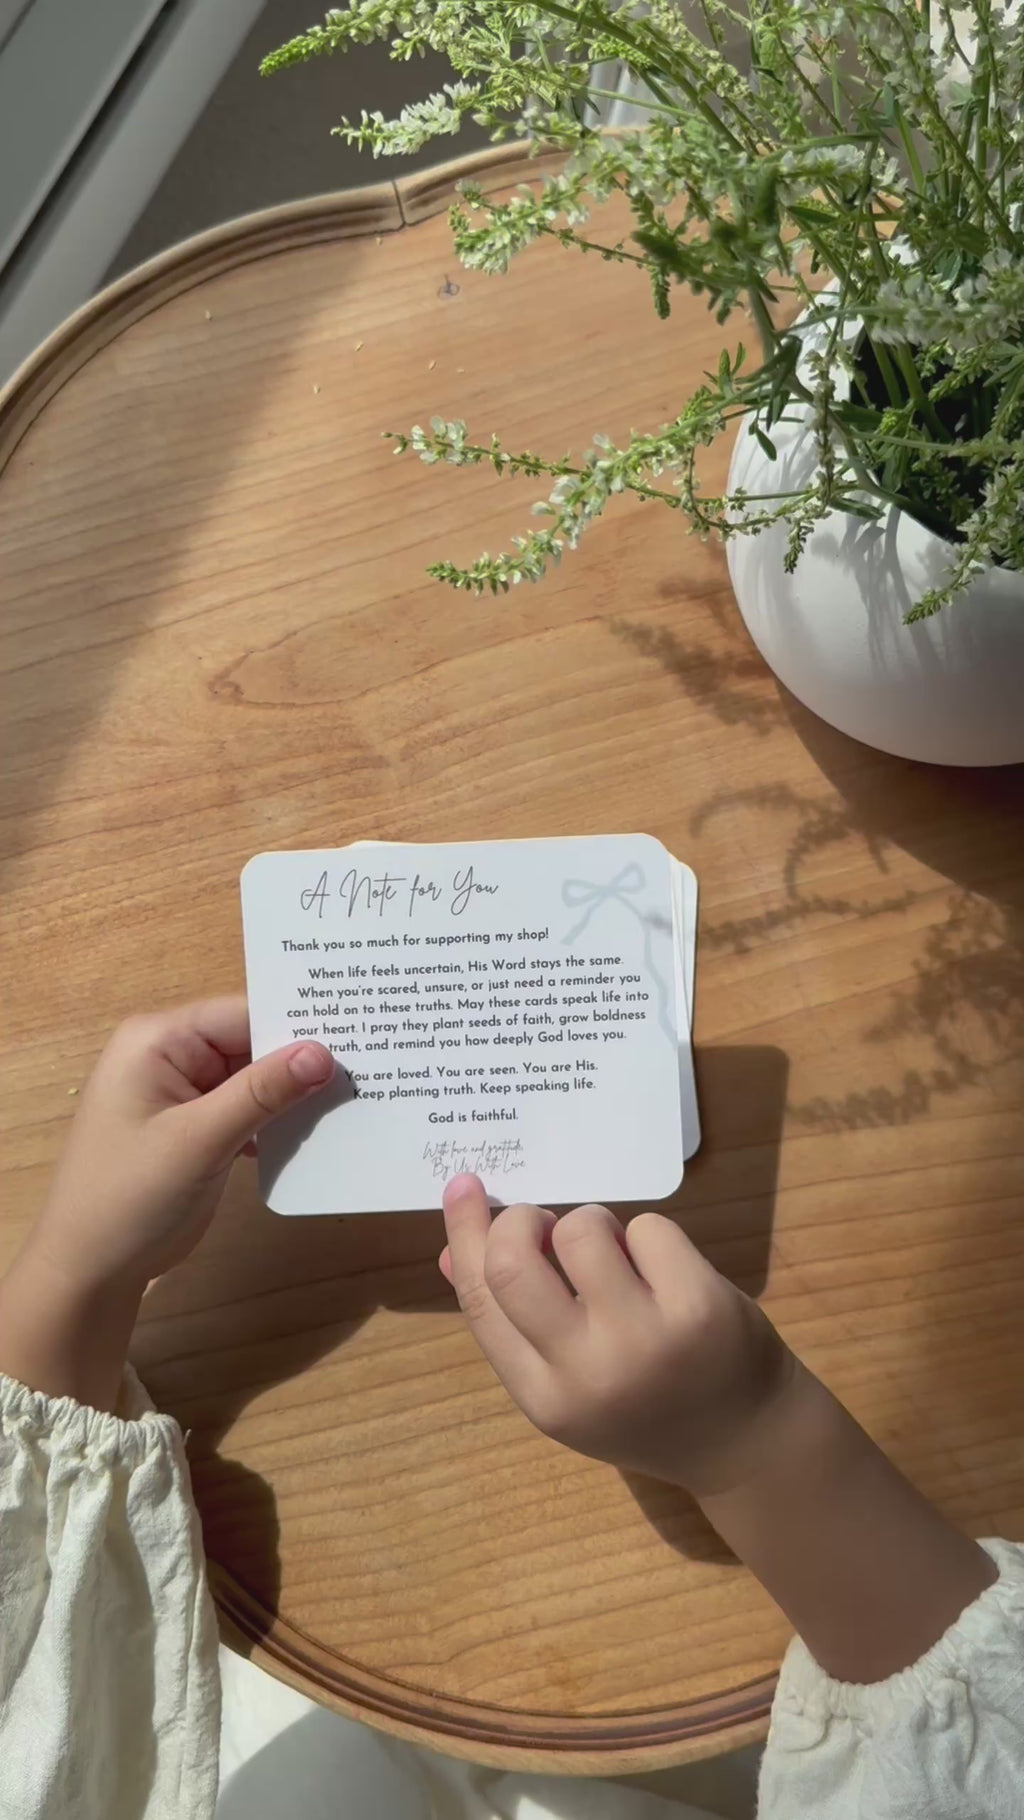 A Note for You
Thank you so much for supporting my shop!
When life feels uncertain, His Word stays the same.
When you're scared, unsure, or just need a reminder you
can hold on to these truths. May these cards speak life into
your heart. I pray they plant seeds of faith, grow boldness
truth, and remind you how deeply God loves you.
You are loved. You are seen. You are His.
Keep planting truth. Keep speaking life.
God is faithful.
With love and gratitude,
By Us With Love